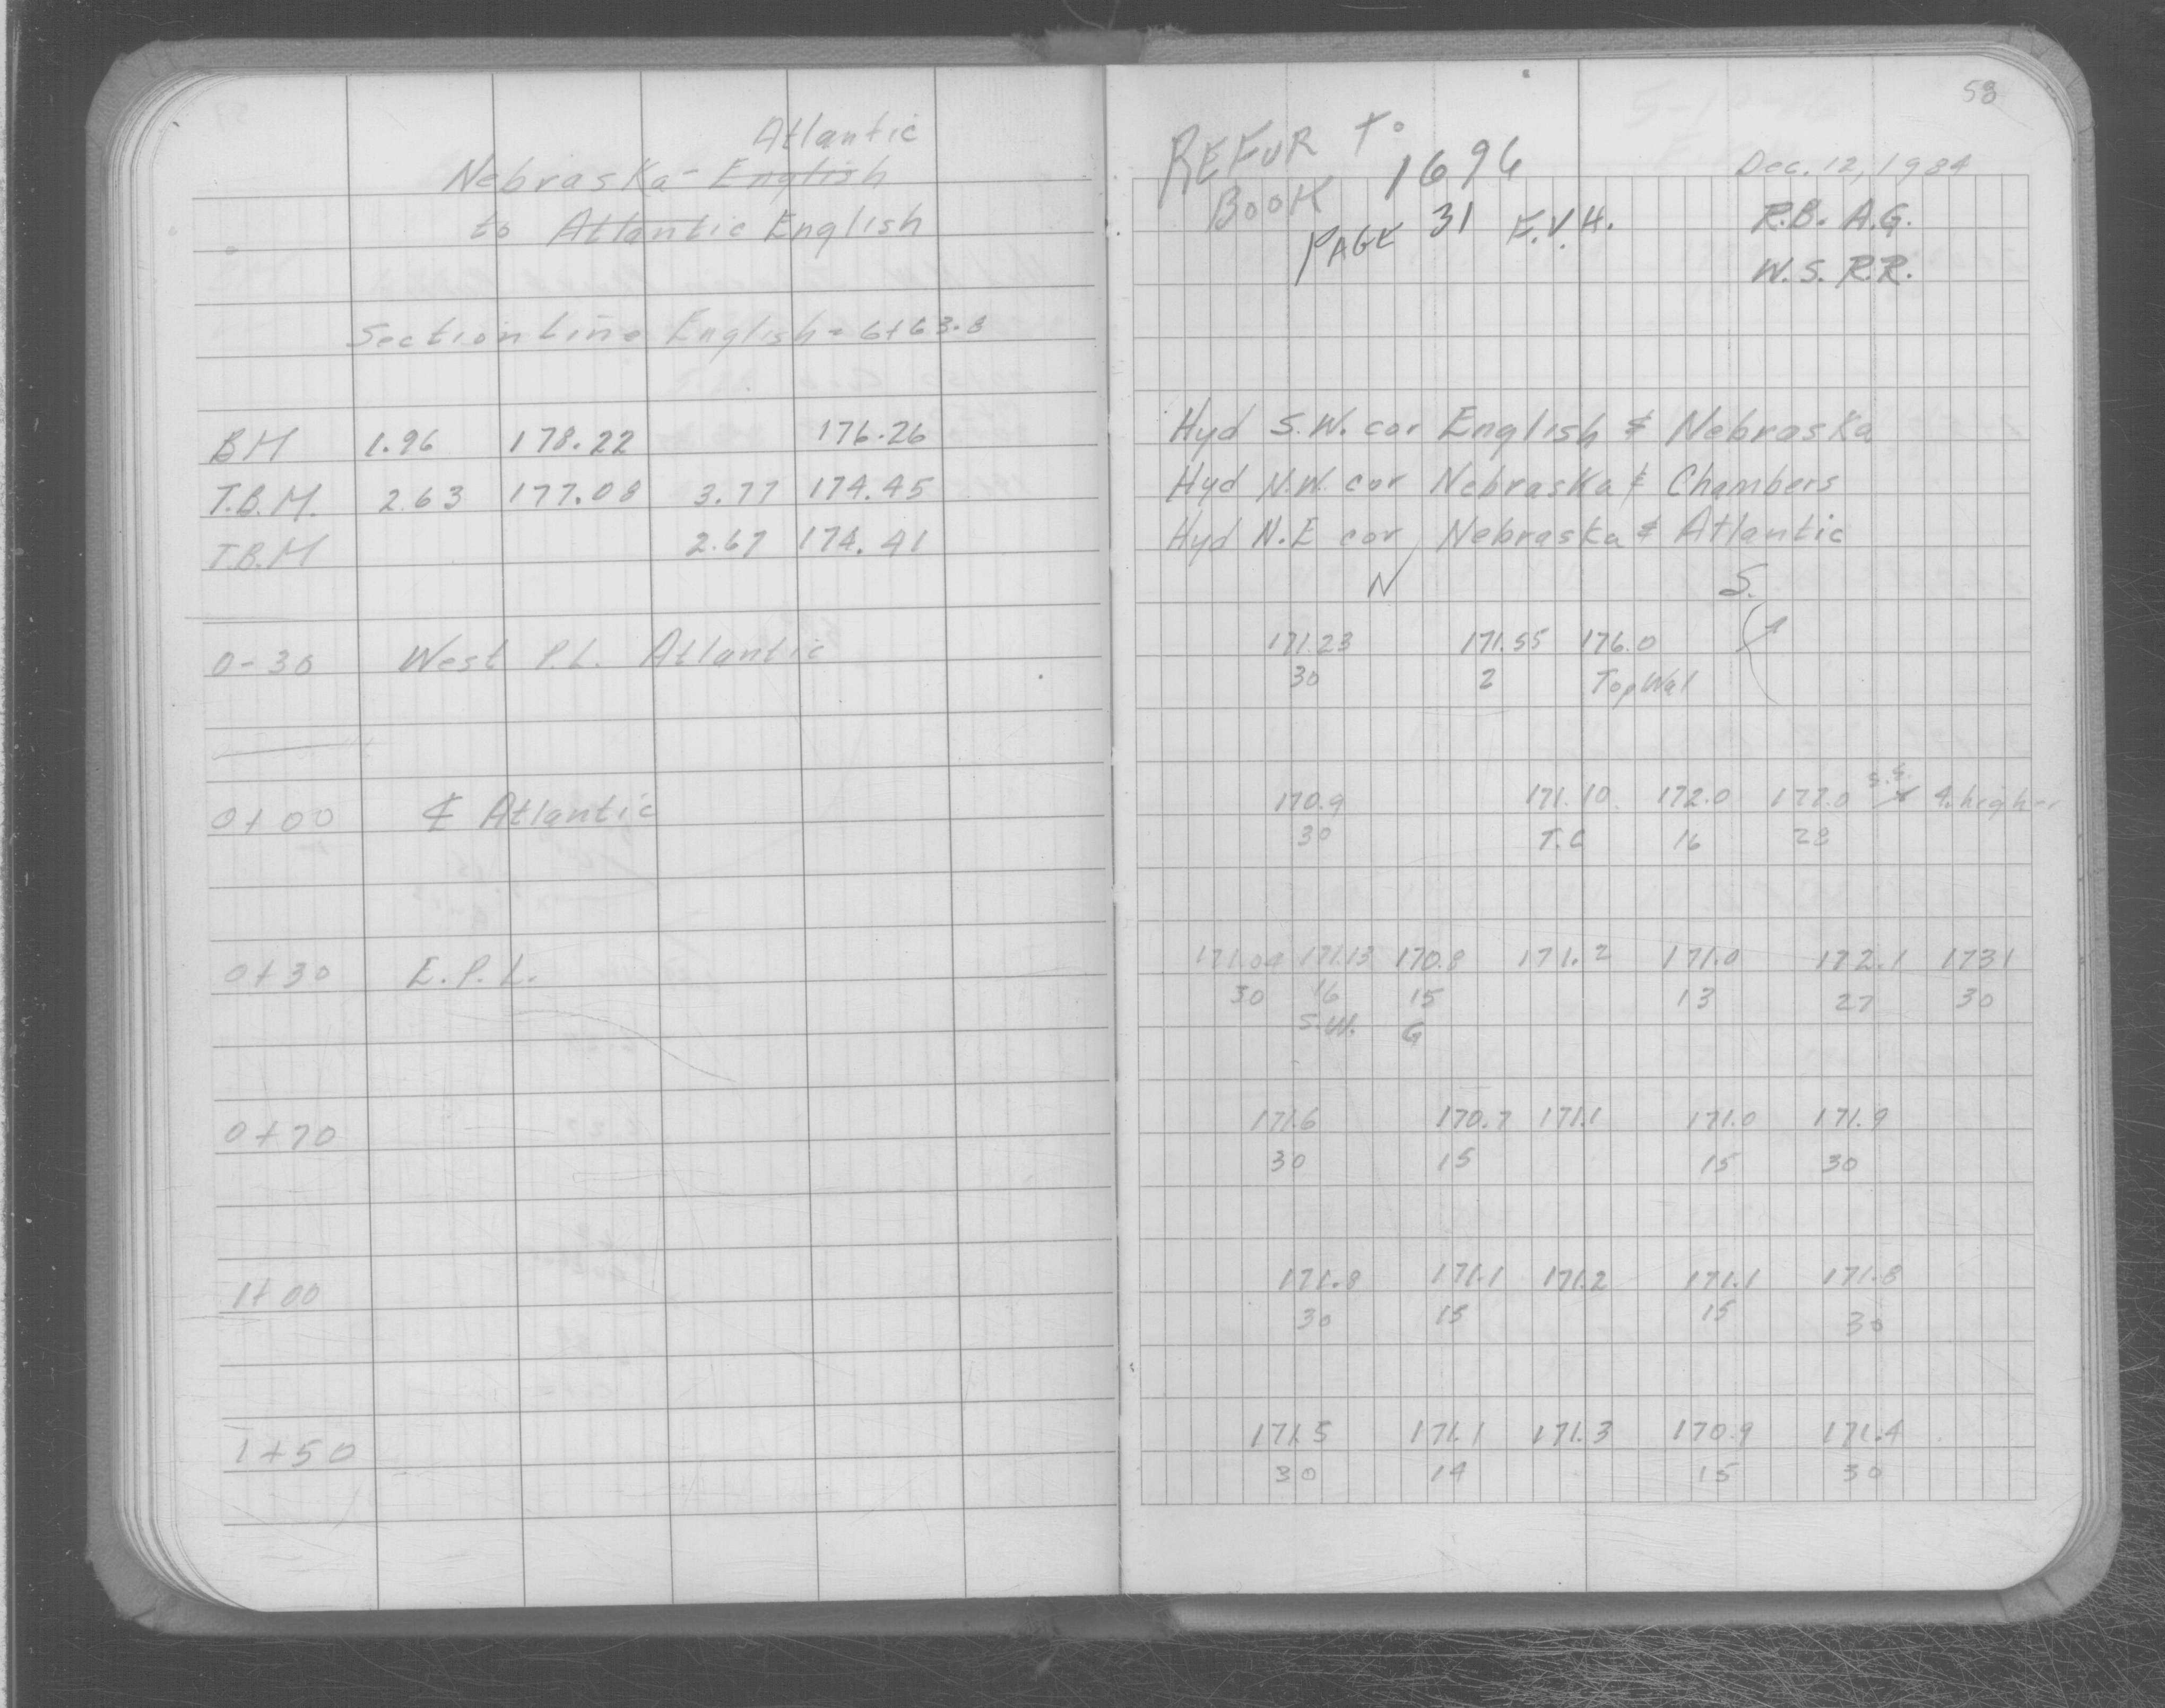 Atlantic
Nebraska - English
to Atlantic English
Section Line English = 6+63.8
BM 1.96 178.22 176.26
T.B.M. 2.63 177.08 3.77 174.45
T.B.M 2.67 174.41
0-30 West P.L. Atlantic
0+00 ℄ Atlantic
0+30 E.P.L.
0+70
1+00
1+50
58
REFUR To
BOOK 1696
PAGE 31 E.V.H.
Dec. 12, 1934
R.B. A.G.
W.S. R.R.
Hyd S.W. cor English & Nebraska
Hyd N.W. cor Nebraska & Chambers
Hyd N.E cor Nebraska & Atlantic
N S.
171.23 171.55 176.0
30 2 Top Wal
170.9 171.10 172.0 177.0 4. higher
30 T.C 16 28
171.04 171.13 170.8 171.2 171.0 172.1 173.1
30 16 15 13 27 30
S.W. G
171.6 170.7 171.1 171.0 171.9
30 15 15 30
171.8 171.1 171.2 171.1 171.8
30 15 15 30
171.5 171.1 171.3 170.9 171.4
30 14 15 30